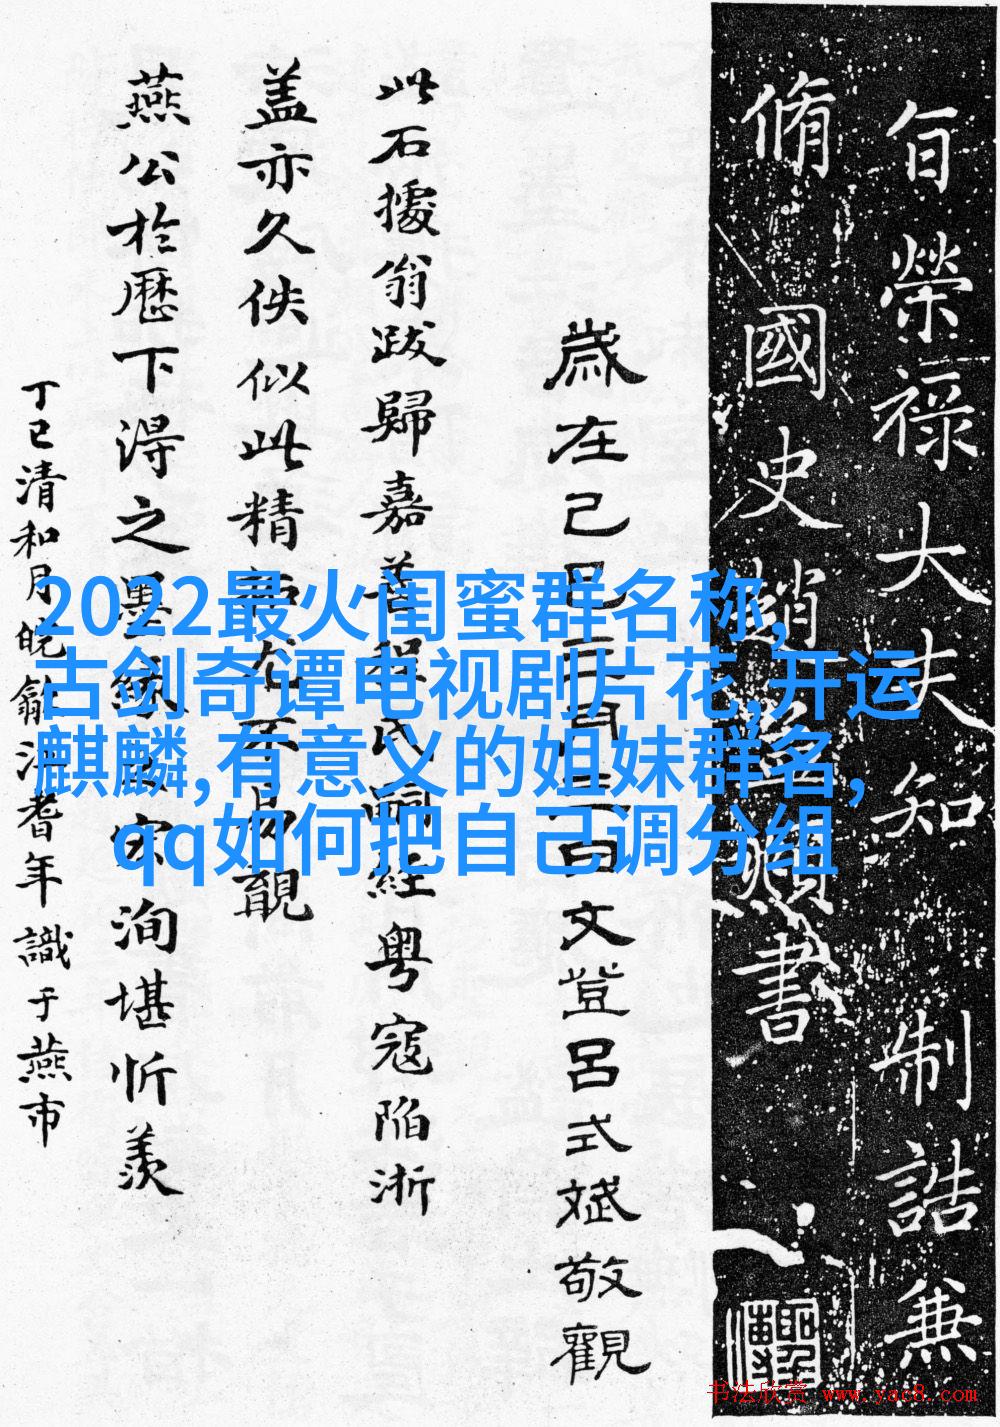 旨榮祿大夫知 制誥兼
脩國史趙孟頫書
歲在己巳 月 日文登呂式斌敬觀
此石據翁跋歸嘉善程氏嗣經粤寇陷浙
盖亦久佚似此精 不易覯
燕公於歷下得之墨 洵堪忻羨
丁巳清和月皖歙汪 耆年識于燕市
2022最火闺蜜群名称,
古剑奇谭电视剧片花,开运
麒麟,有意义的姐妹群名,
qq如何把自己调分组
书法欣赏 www.yac8.com